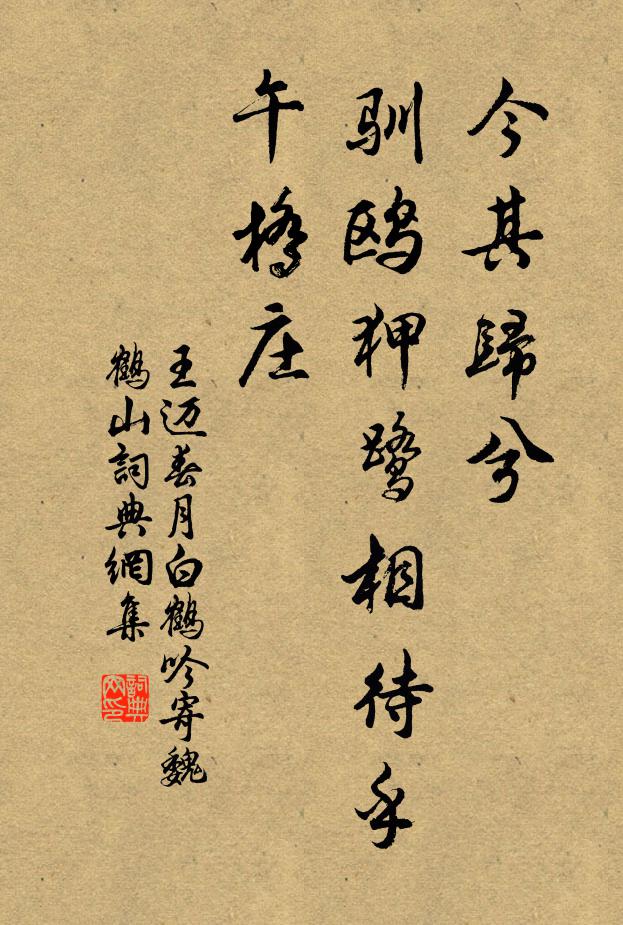 今其歸兮
馴鷗狎鷺相待乎
午橋庄
王迈春月白鶴吟寄魏
鶴山詞典網集
詞典
文印